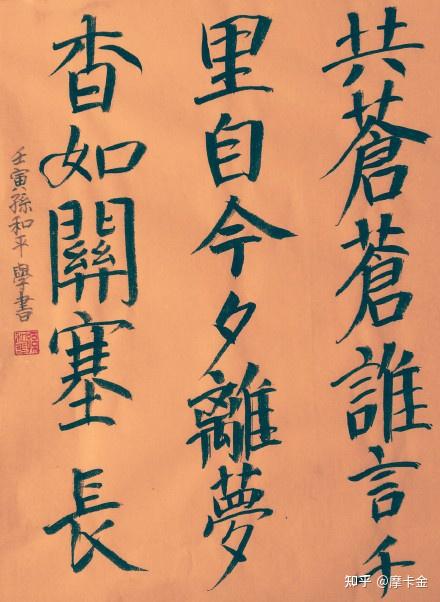 共蒼蒼誰言千
里自今夕離夢
杳如關塞長
壬寅孫和平學書
知乎 @摩卡金